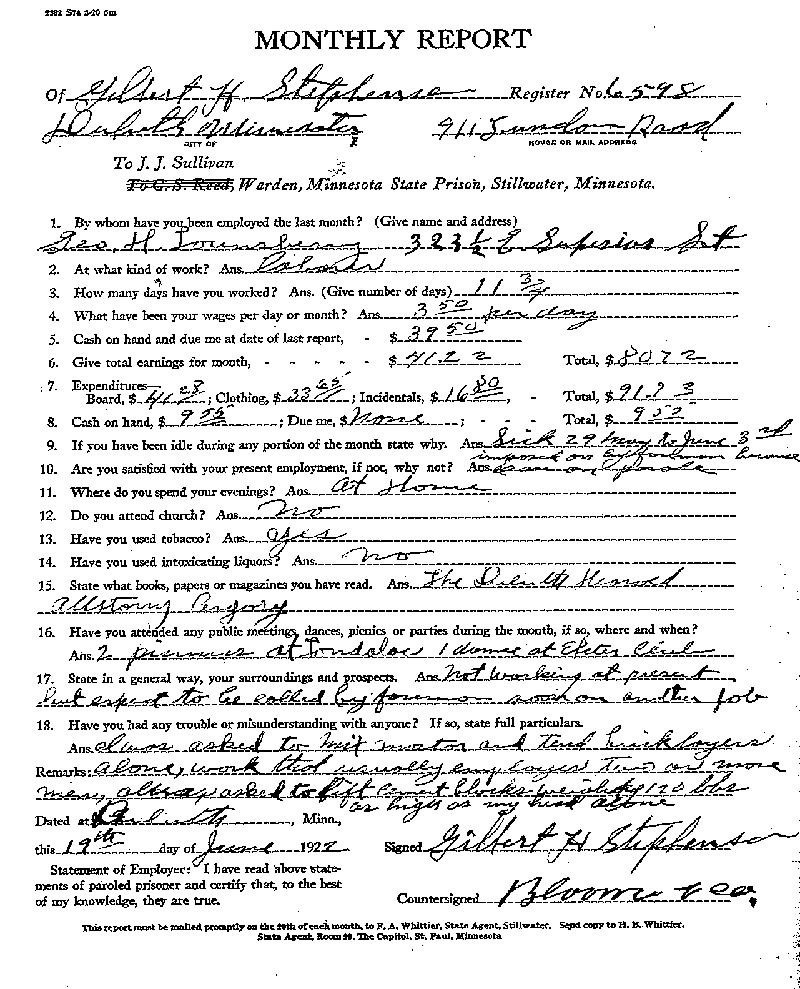 2382 S74 3-20 6m
MONTHLY REPORT
Of Gilbert H Stephenson Register No. 6598
Duluth Minnesota 911 London Road
CITY OF HOUSE OR MAIL ADDRESS
To J. J. Sullivan
To C. S. Reed, Warden, Minnesota State Prison, Stillwater, Minnesota.
1. By whom have you been employed the last month? (Give name and address)
Geo. H. Lounsberry 323½ E Superior St
2. At what kind of work? Ans. Laborer
3. How many days have you worked? Ans. (Give number of days) 11 3/4
4. What have been your wages per day or month? Ans. 3 50 per day
5. Cash on hand and due me at date of last report, - $ 39 50
6. Give total earnings for month, - - - - - $ 41 22 Total, $ 80 72
7. Expenditures—
Board, $ ; Clothing, $ ; Incidentals, $ 16 80, - Total, $
8. Cash on hand, $ ; Due me, $ None ; - - - Total, $
9. If you have been idle during any portion of the month state why. Ans. Sick 29 May to June 3rd
10. Are you satisfied with your present employment, if not, why not? Ans. imposed on by foreman because
on parole
11. Where do you spend your evenings? Ans. At Home
12. Do you attend church? Ans. no
13. Have you used tobacco? Ans. yes
14. Have you used intoxicating liquors? Ans. no
15. State what books, papers or magazines you have read. Ans. The Duluth Herald
Allstory Argosy
16. Have you attended any public meetings, dances, picnics or parties during the month, if so, where and when?
Ans. 2 picnics at Fondulac 1 dance at Club
17. State in a general way, your surroundings and prospects. Ans. Not working at present
but expect to be called by foreman soon on another job
18. Have you had any trouble or misunderstanding with anyone? If so, state full particulars.
Ans. I was asked to mix mortor and tend bricklayers
Remarks: alone, work that usually employes two or more
men, asked to lift blocks weighing 120 lbs
as high as my head alone
Dated at Duluth, Minn.,
this 19th day of June 1922 Signed Gilbert H Stephenson
Statement of Employer: I have read above state-
ments of paroled prisoner and certify that, to the best
of my knowledge, they are true.
Countersigned Bloom & Co.
This report must be mailed promptly on the 20th of each month, to F. A. Whittier, State Agent, Stillwater. Send copy to H. B. Whittier.
State Agent, Room 20, The Capitol, St. Paul, Minnesota